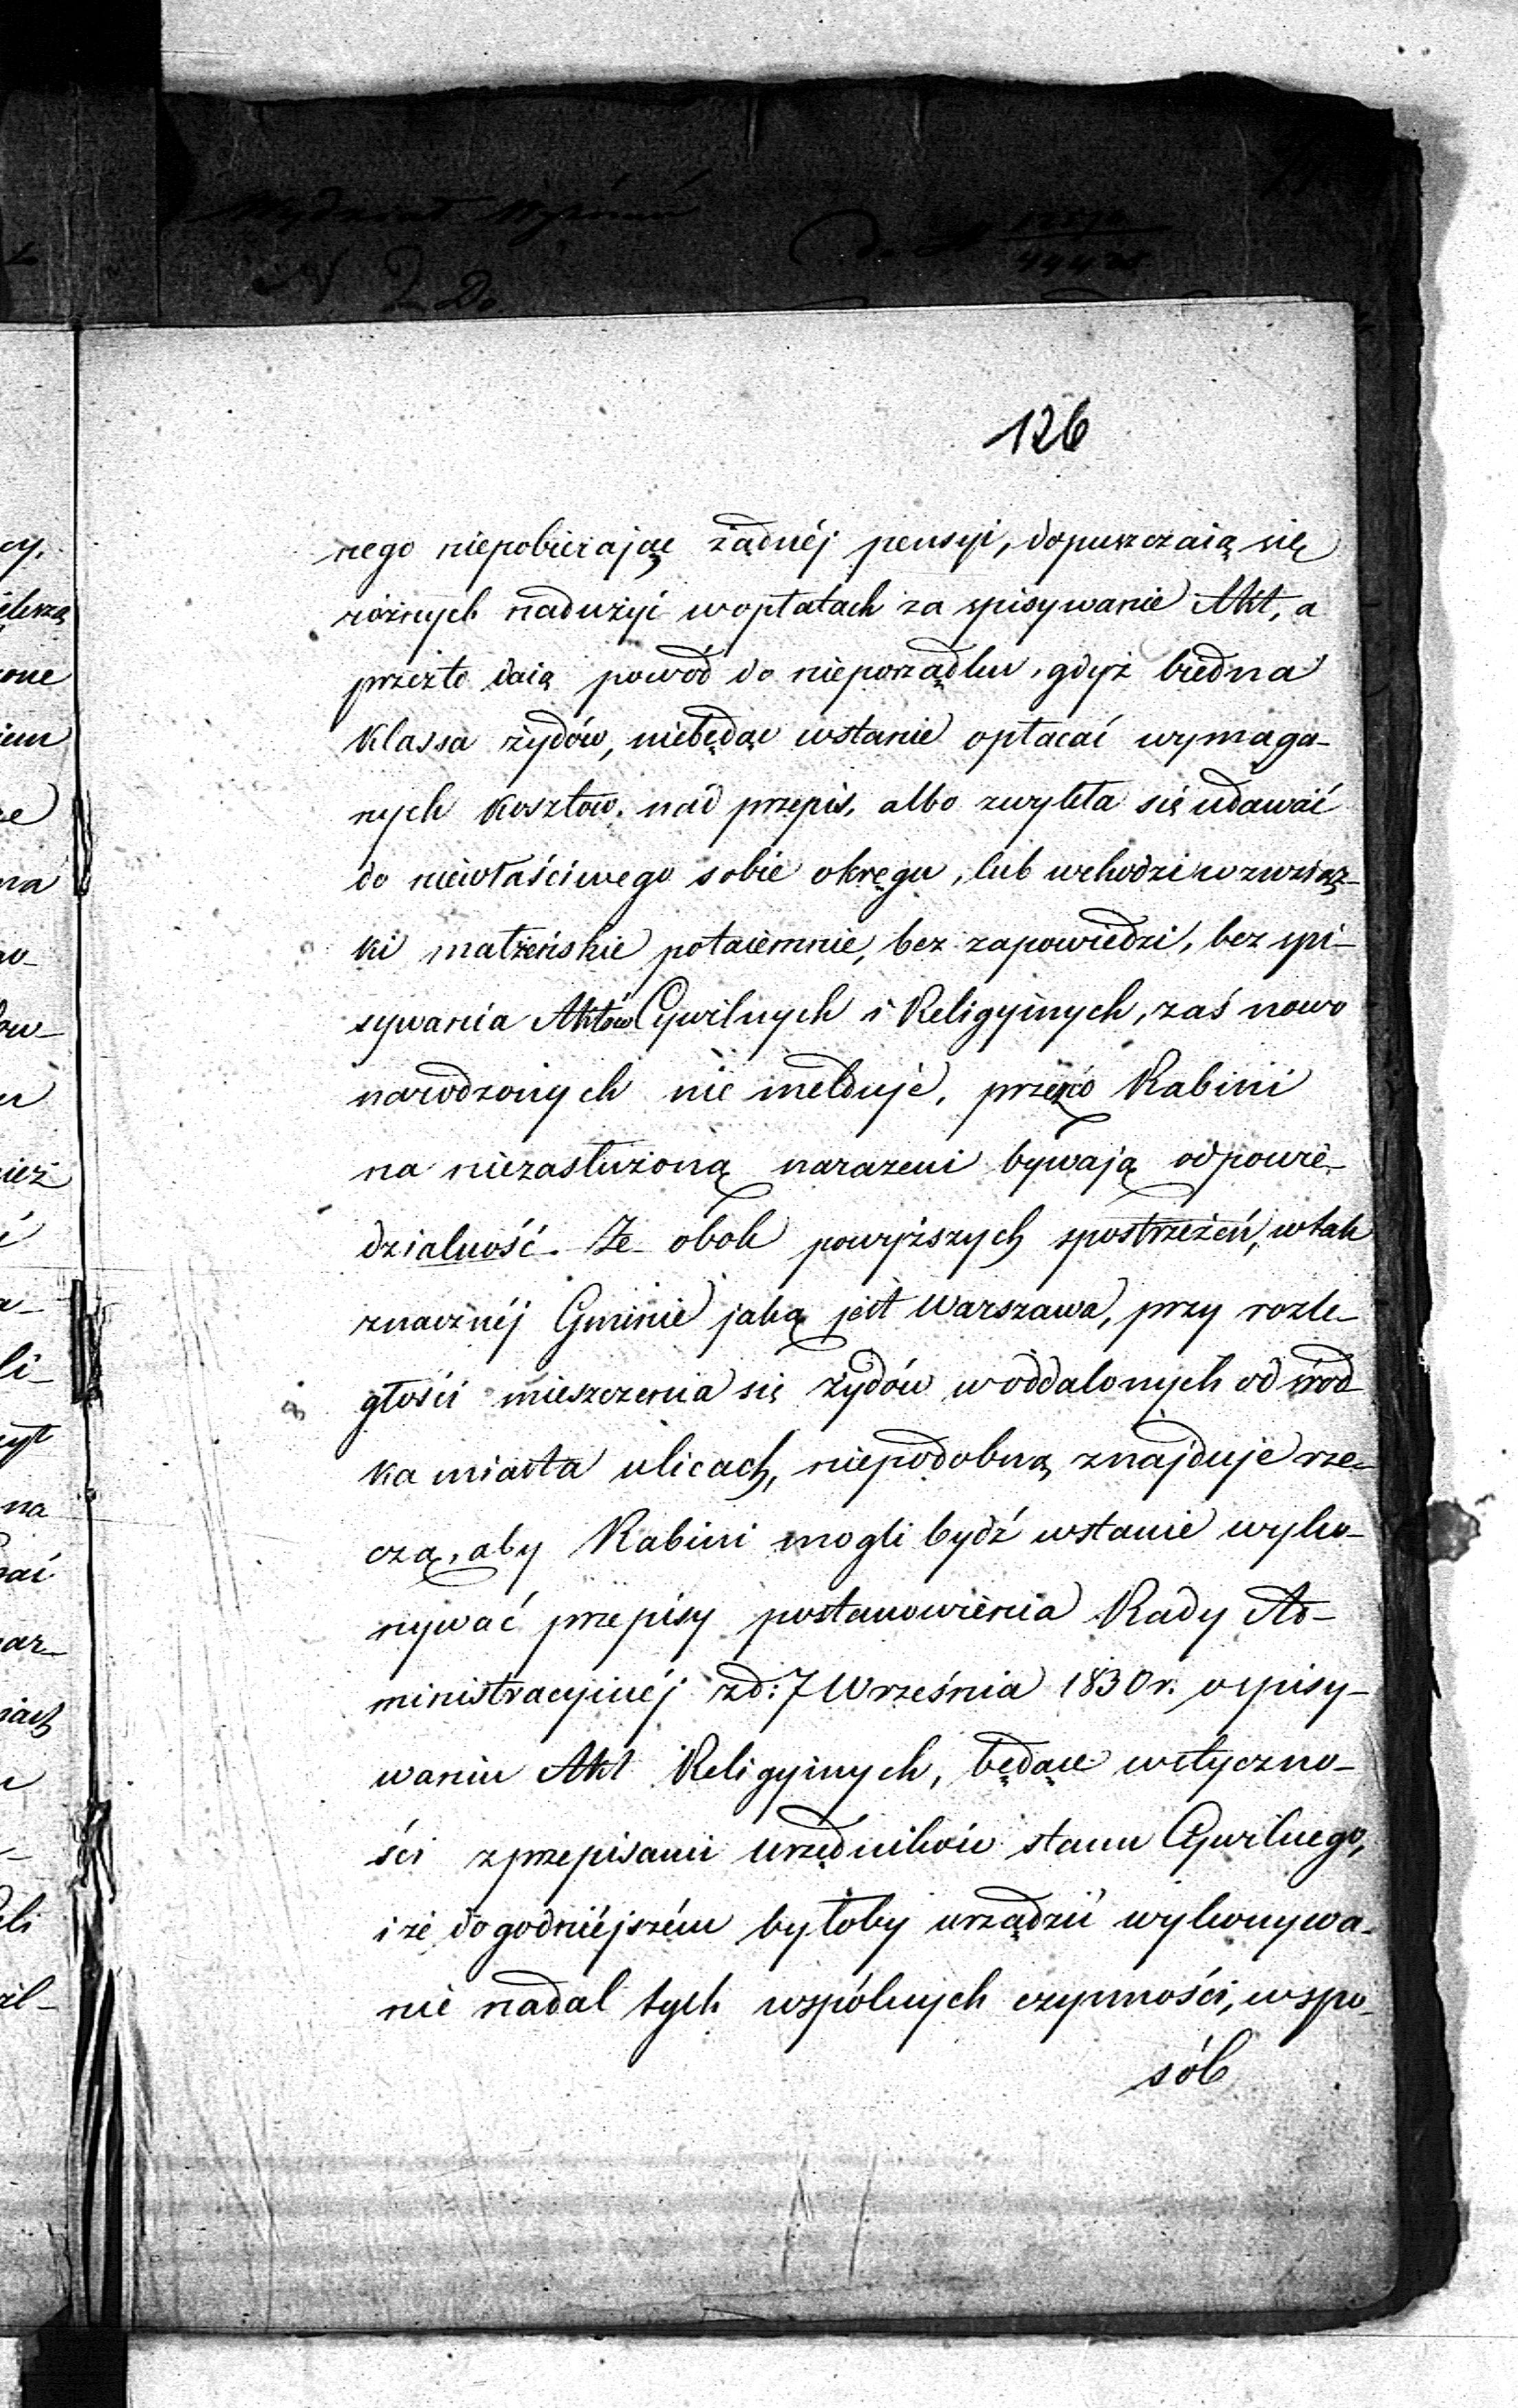 126
nego niepobierając żadnéj pensyi, dopuszczaią się
różnych nadużyć w opłatach za spisywanie Akt, a
przezto daią powód do nieporządku, gdyż biedna
Klassa żydów, niebędąc wstanie opłacać wymaga-
nych kosztów nad przepis, albo zwykła się udawać
do niewłaściwego sobie okręgu, lub wchodzi w związ-
ki małżeńskie potaiemnie, bez zapowiedzi, bez spi-
sywania Aktów Cywilnych i Religyinych, zaś nowo
narodzonych nie melduje, przeco Rabini
na niezasłużoną narazeni bywają odpowie-
dzialność. Że obok powyższych spostrzeżeń, w tak
znacznéj Gminie jaką jest Warszawa, przy rozle-
głości mieszczenia się żydów w oddalonych od śród
ka miasta ulicach, niepodobną znajduje rze-
czą, aby Rabini mogli bydź wstanie wyko-
nywać przepisy postanowienia Rady Ad-
ministracyinéj z d: 7 Września 1830 r. o spisy-
waniu Akt Religyinych, będące w styczno-
ści z przepisami urzędników stanu Cywilnego,
i że dogodniéjszém byłoby urządzić wykonywa-
nie nadal tych wspólnych czynności, w spo-
sób